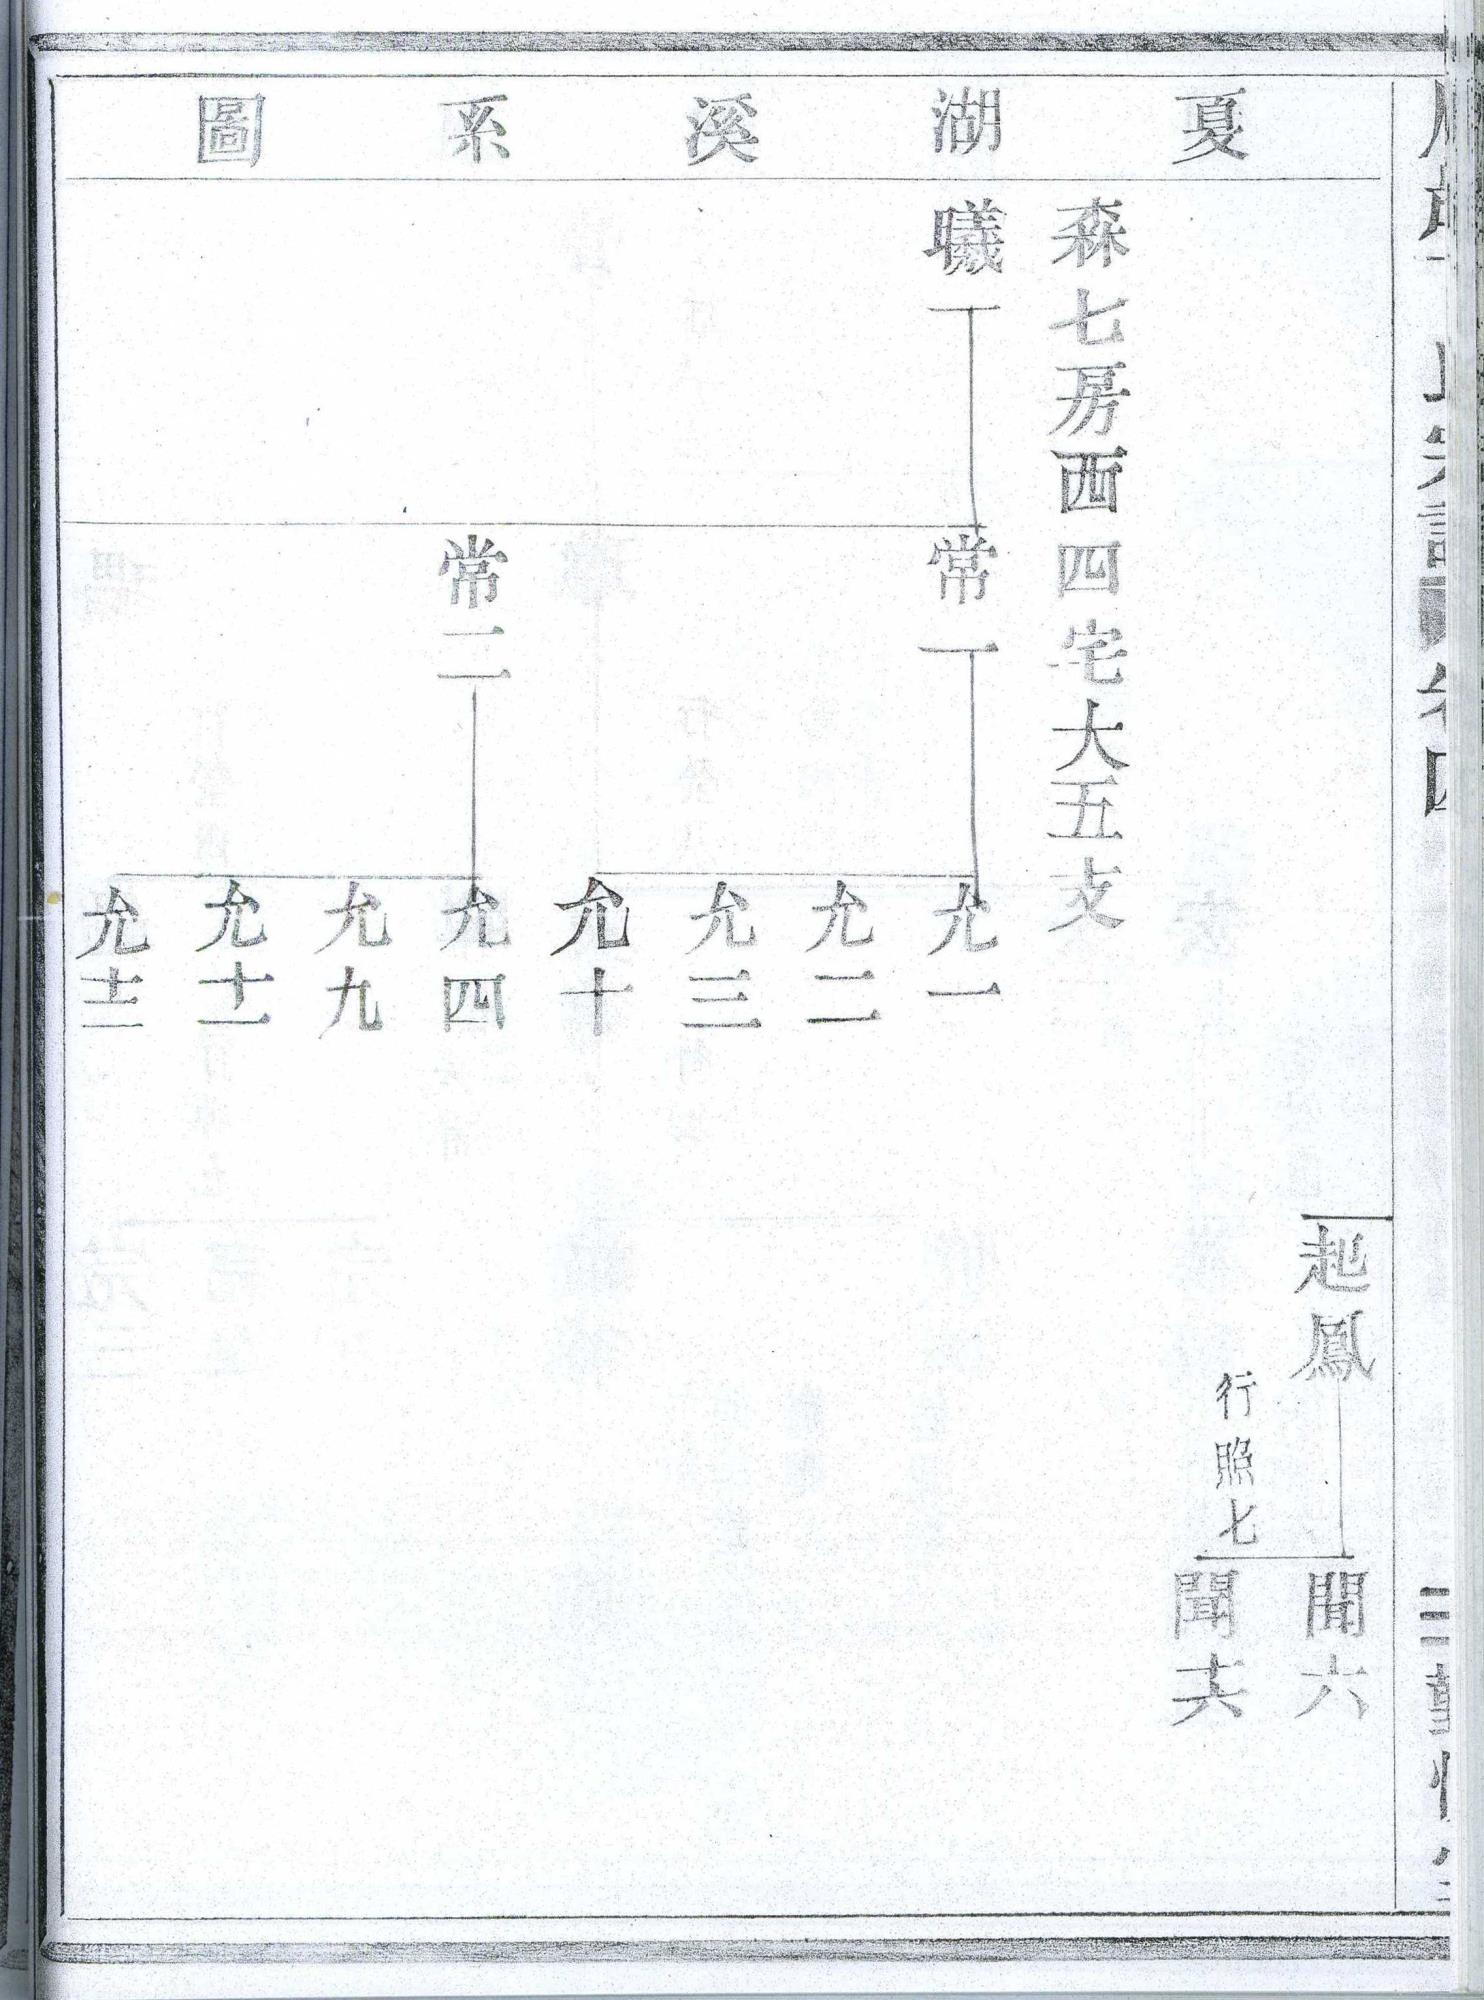 夏湖溪系圖
起鳳
行照七
聞六
聞十六
森七房西四宅大五支
曦一
常一
常二
允一
允二
允三
允十
允四
允九
允十一
允十二